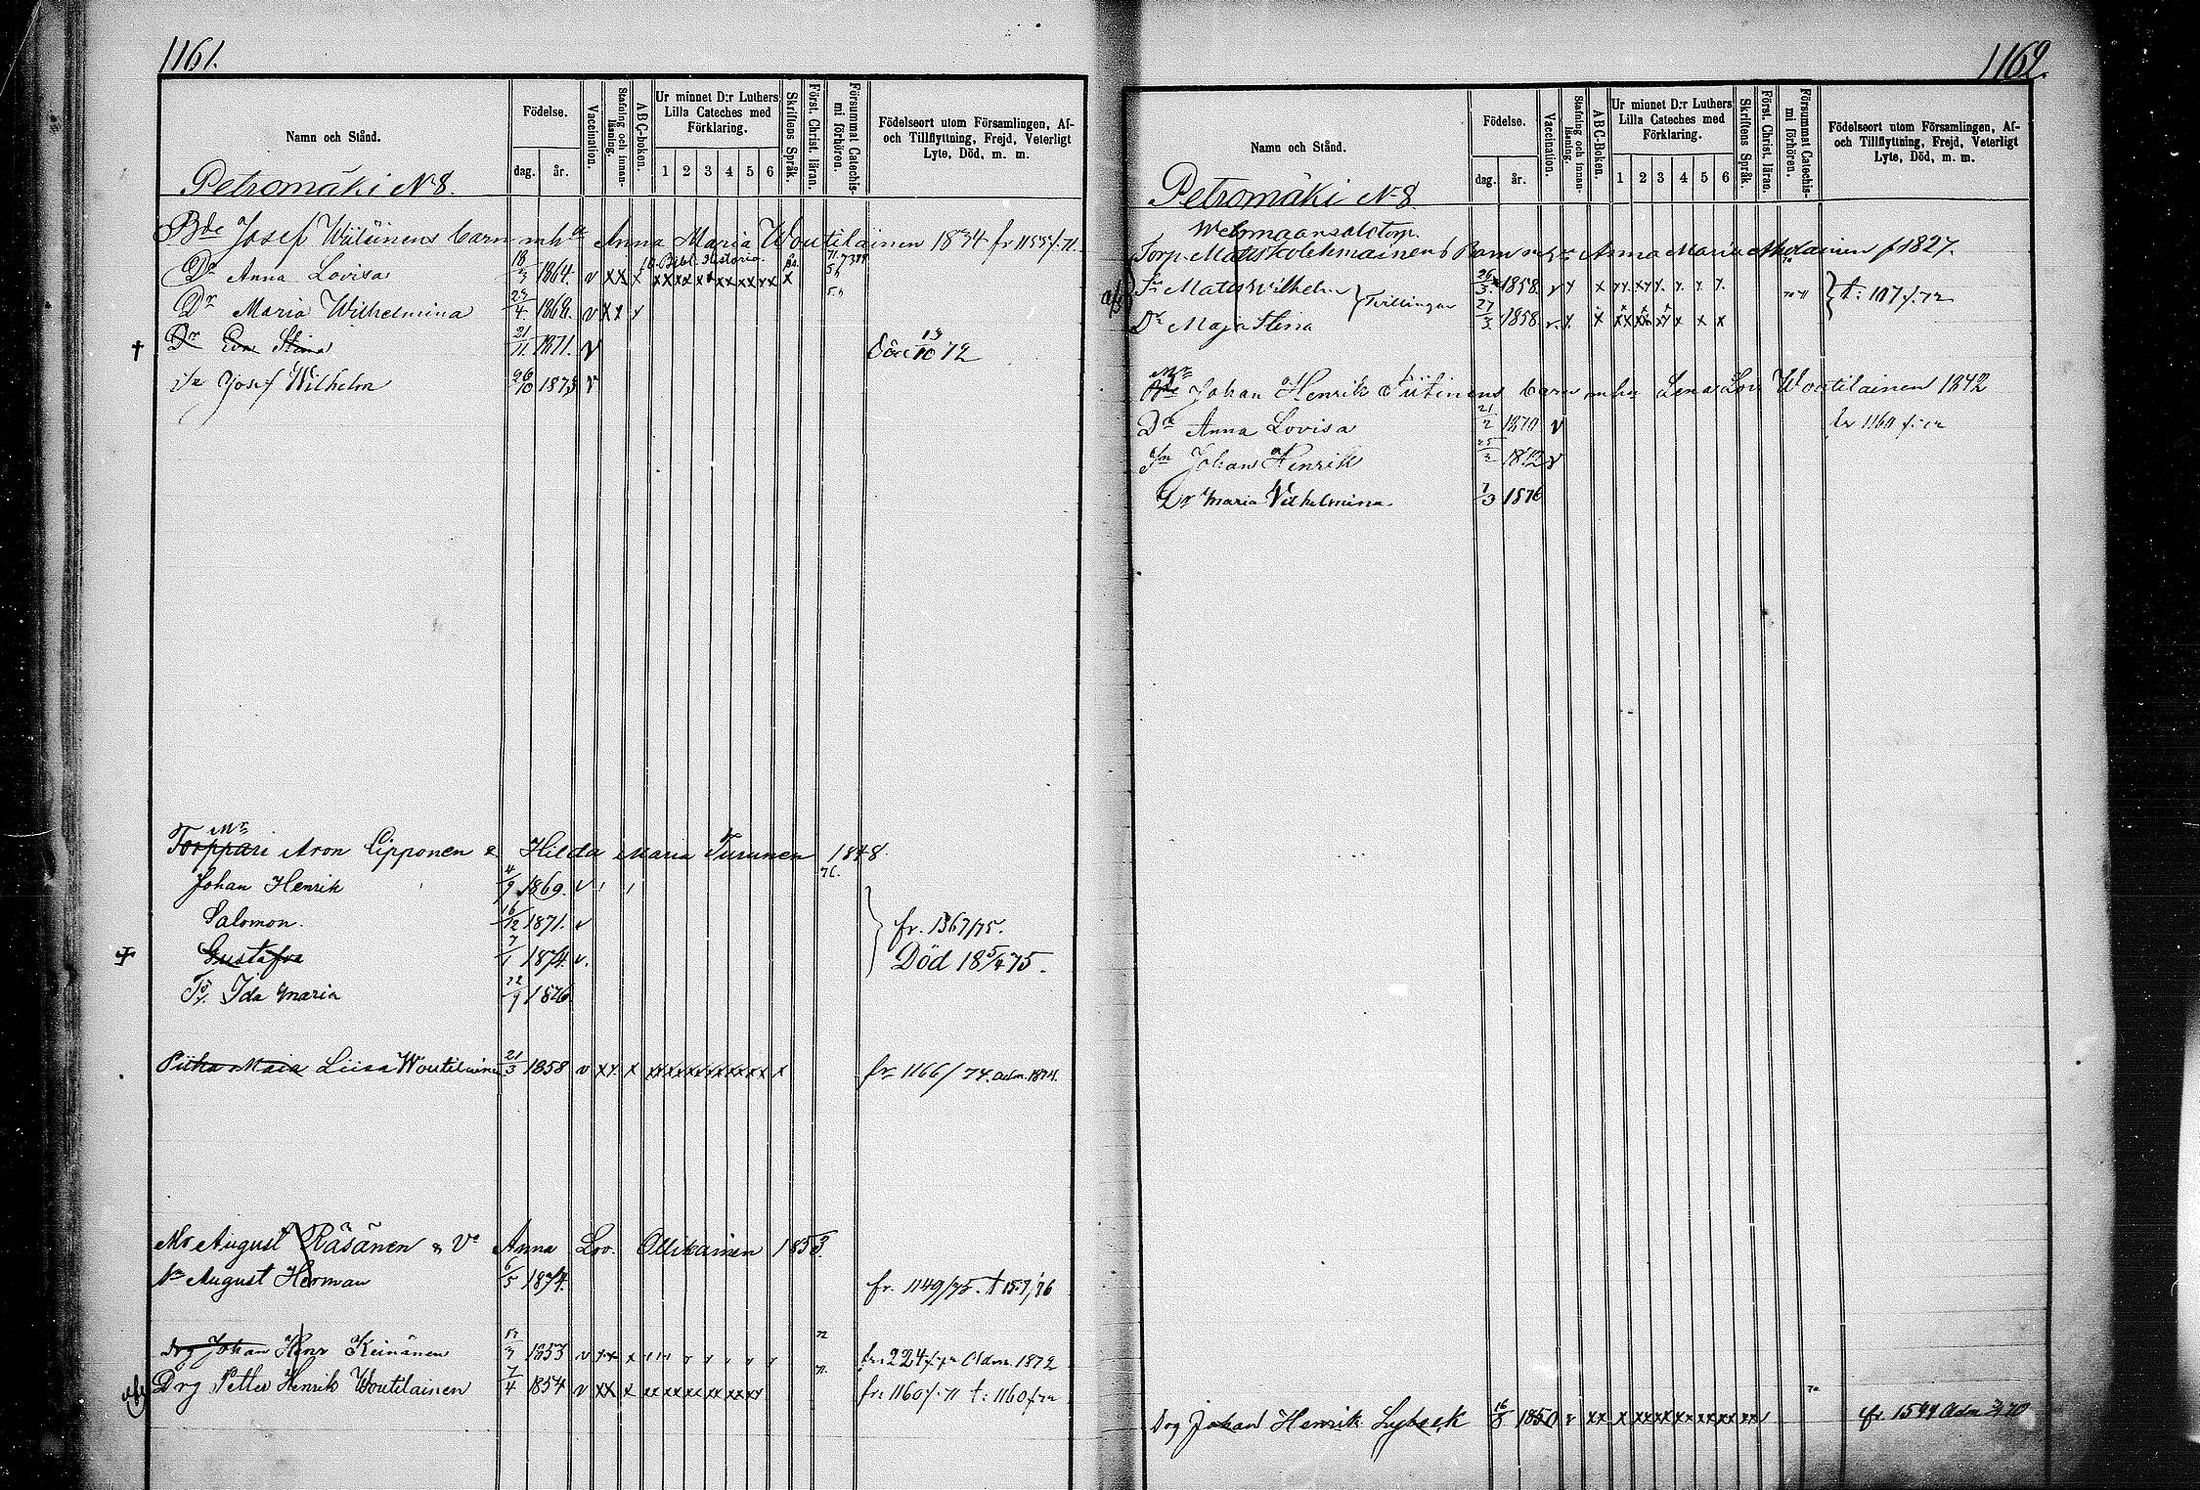 1161.
Namn och Stånd.
Födelse.
dag.
år.
Vaccination.
Stafning och innan-läsning.
A B C-boken.
Ur minnet D:r Luthers Lilla Cateches med Förklaring.
1 2 3 4 5 6
Skriftens Språk.
Först. Christ. läran.
Försummat Catechis-mi förhören.
Födelseort utom Församlingen, Af- och Tillflyttning, Frejd, Veterligt Lyte, Död, m. m.
Petromäki N 8.
Bde Josef Wiitinens barn mh Anna Maria Woutilainen 1834 fr 1155 f. 71.
Dr Anna Lovisa 18/3 1864. v xx x Bibl. Historia
Dr Maria Wilhelmina 23/4 1868. v xx x
† Dr Eva Stina 21/11 1871. v Död 13/10 72
Sn Josef Wilhelm 26/10 1873 v
Mn
Torppari Aron Cipponen & Hilda Maria Turunen 1848.
Johan Henrik 4/9 1869. v
Salomon. 16/12 1871. v fr. 1367/75.
Gustafva 7/1 1874. v. Död 18 5/4 75.
Ida Maria 22/9 1876
Piika Maia Liisa Woutilainen 21/3 1858 v xx x fr 1166/74. adm. 1874.
Mn August Räsänen & Ve Anna Lov. Ollikainen 1853.
August Herman 6/5 1874. fr. 1149/75. t 157/76
Drg Johan Henr Keinänen 1853 v fr. 224 Adm. 1872
Drg Petter Henrik Woutilainen 7/4 1854 v xx x fr. 1160 f. 71 t. 1160 f 72
1162.
Namn och Stånd.
Födelse.
dag.
år.
Vaccination.
Stafning och innan-läsning.
A B C-Boken.
Ur minnet D:r Luthers Lilla Cateches med Förklaring.
1 2 3 4 5 6
Skriftens Språk.
Först. Christ. läran.
Försummat Catechis-mi förhören.
Födelseort utom Församlingen, Af- och Tillflyttning, Frejd, Veterligt Lyte, Död, m. m.
Petromäki N 8.
Torp. Mats Kolehmainens Barn Anna Maria f 1827.
Sn Mats Wilhelm 26/3 1858. Tvillingar t. 107 f. 72
Dr Maja Stina 27/3 1858.
Johan Henrik barn Lena Lov Woutilainen 1842
Dr Anna Lovisa 21/2 1870 v fr 1160
Sn Johan Henrik 1872 v
Dr Maria Vilhelmina 1/3 1876
Drg Johan Henrik Lybeck 16/8 1850 v xx x fr. 1544 Adm 70